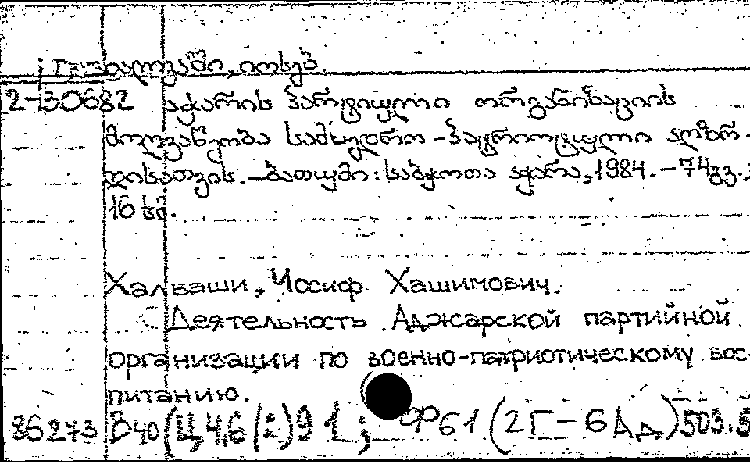 ხალვაში, იოსებ.
2-30682 აჭარის პარტიული ორგანიზაციის
მოღვაწეობა სამხედრო-პატრიოტული აღზრ-
დისათვის. – ბათუმი: საბჭოთა აჭარა, 1984. – 74გვ.;
16 სმ.
Халваши, Иосиф Хашимович.
Деятельность Аджарской партийной
организации по военно-патриотическому вос
питанию.
86273 В40(Ц4,6(:)91; Ф61(2Г-6Ад)503.5